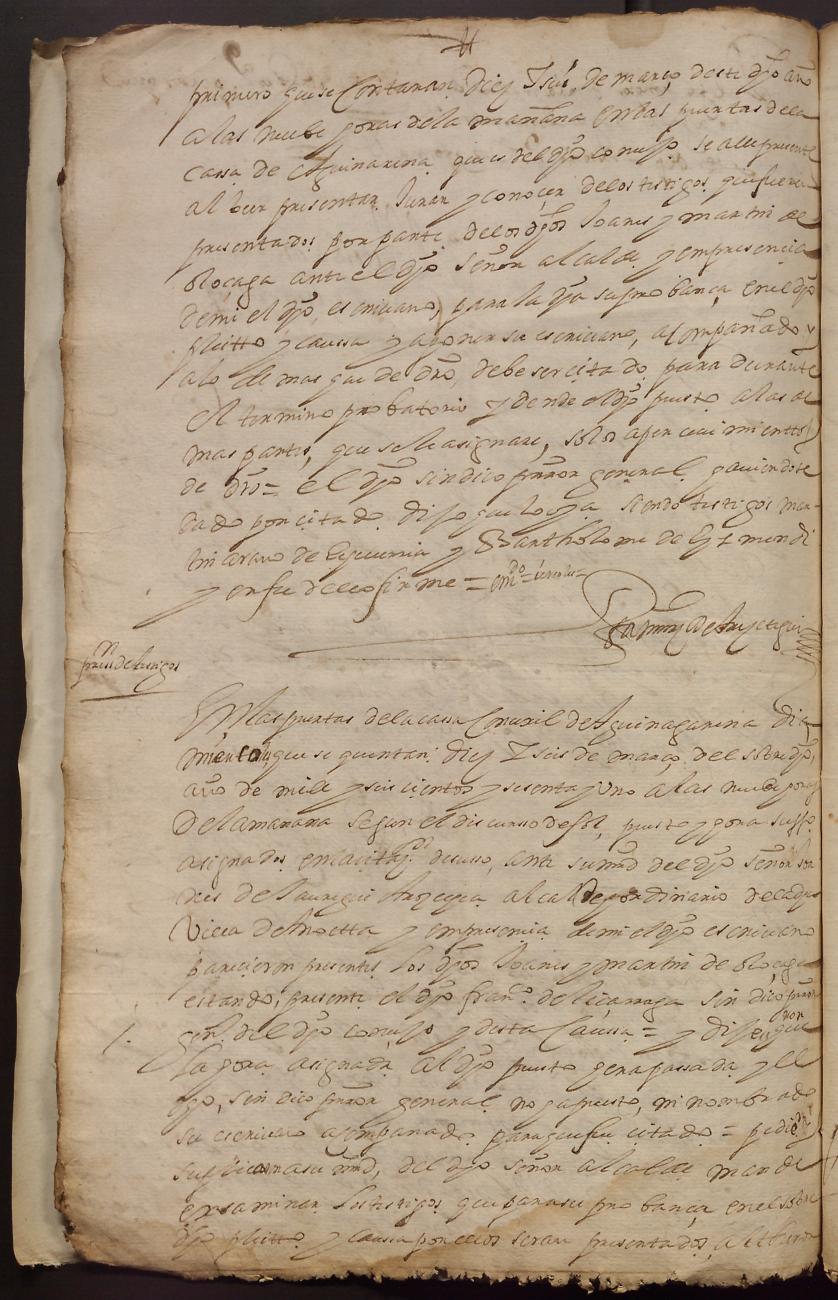 primero que se Contaran diez y seis de março deste dho año
a las nuebe horas de la mañana en las puertas de la
cassa de Aguinarena que es del dho conçejo se alle presente
al ber presentar Jurar y conoçer de los testigos que fueren
presentados por parte de los dhos Joanes y martin de
olocaga ante el dho señor alcalde y em presencia
de mi el dho escriuano, para la dha su probança, en el dho
pleitto y caussa y a poner su escriuano, acompañado y
a lo demas que de dro, debe ser citado para durante
el termino probatorio y dende el dho puesto a las de
mas partes, que se le asignare, so los aperceuimienttos
de dro = el dho sindico prror general hauiendose
dado por citado dijo que lo oya siendo testigos mar-
tin de y Bartholome de
y en fe dello firme =
presn de testigos
En Las puertas de la cassa Conçejil de Aguinagarena dia
que se quentan diez y seis de março, del sobre dho,
año de mill y seis cientos y sesenta y uno a las nuebe horas
De la mañana segun el discursso del sol, puesto y hora susso
asignados en la citaçon de susso, ante su md del dho señor
de alcalde hordinario de la dha
Villa de Anoetta y em presençia de mi el dho escriuano
parecieron presentes los dhos Joanes y martin de olocaga
estando, presente el dho franco de liçarraga sindico prror
1. genl del dho conçejo y desta Caussa = y dijeron que
la hora asignada al dho puesto hera passada y el
dho, sindico prror general no ha puesto, ni nombrado
su escriuano acompañado para que fue citado = pidieron y
suplicaron a su md, del dho señor alcalde mande
exsaminar los testigos que para su probança en el sobre
dho pleitto y caussa por ellos seran presentados,